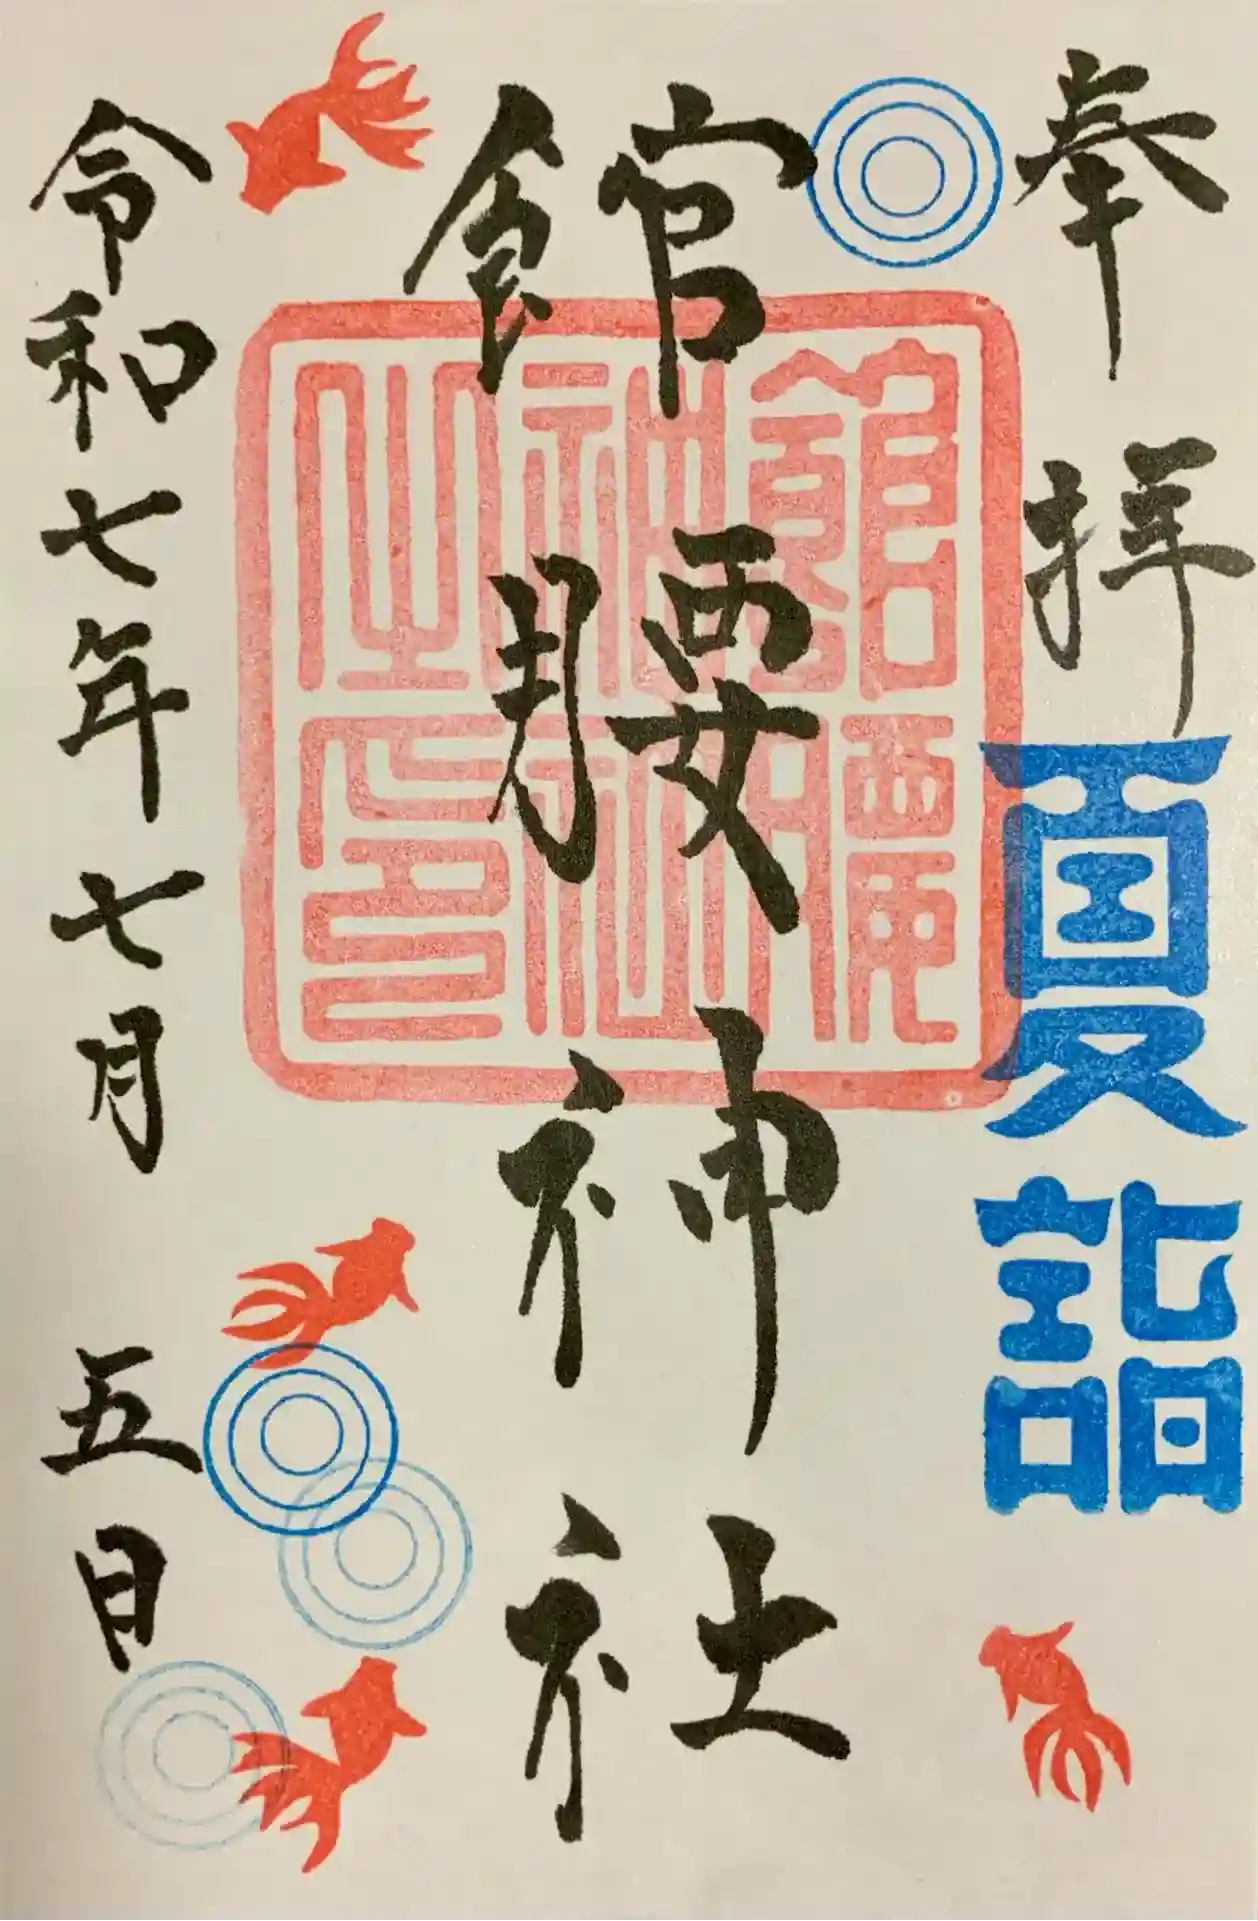 奉拝
夏詣
館腰神社
館腰
神社
之印
令和七年七月五日